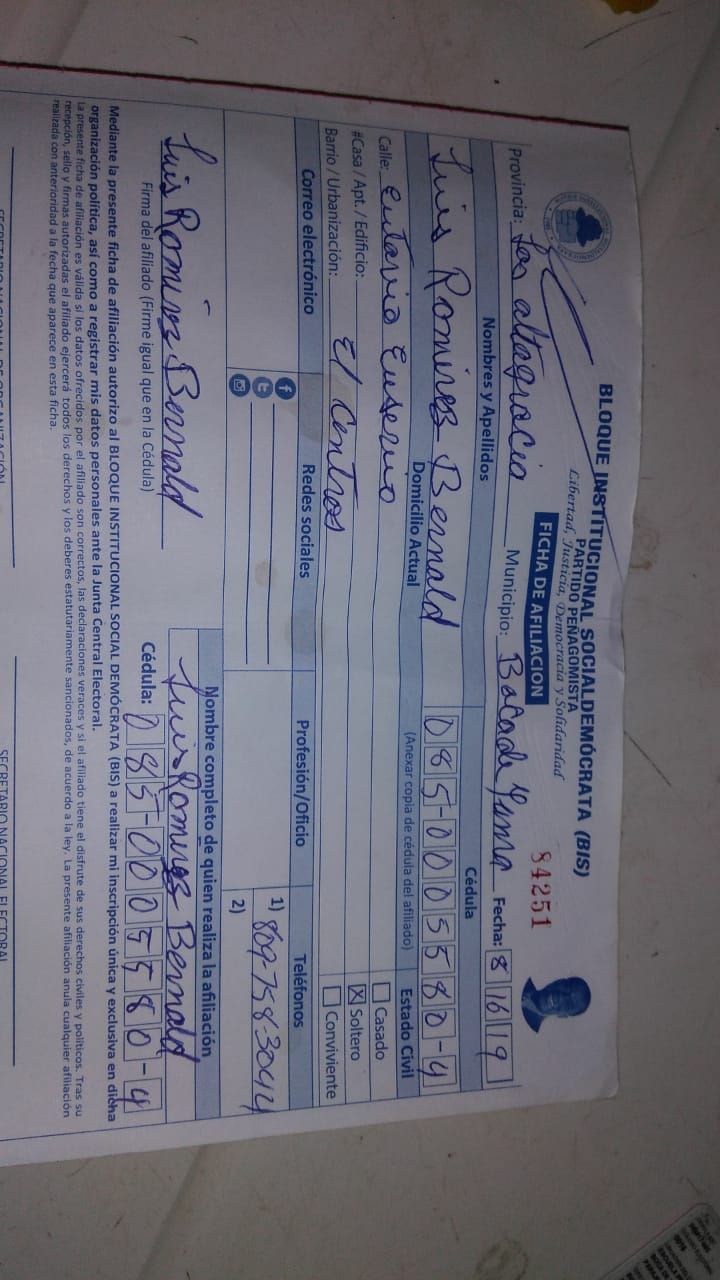 BLOQUE INSTITUCIONAL SOCIALDEMÓCRATA (BIS)
PARTIDO PEÑAGOMISTA
Libertad, Justicia, Democracia y Solidaridad
FICHA DE AFILIACION
84251
Provincia: Las altagracia Municipio: Boca de Yuma Fecha: 8 16 19
Nombres y Apellidos Cédula
Luis Romires Bernald 085-0005580-4
Domicilio Actual (Anexar copia de cédula del afiliado) Estado Civil
Calle: Eutavio Eusevio Casado
#Casa / Apt. / Edificio: X Soltero
Barrio / Urbanización: El Centros Conviviente
Correo electrónico Redes sociales Profesión/Oficio Teléfonos
1) 809-758-3044
2)
Nombre completo de quien realiza la afiliación
Luis Romires Bernald Luis Romires Bernald
Firma del afiliado (Firme igual que en la Cédula) Cédula: 085-0005580-4
Mediante la presente ficha de afiliación autorizo al BLOQUE INSTITUCIONAL SOCIAL DEMÓCRATA (BIS) a realizar mi inscripción única y exclusiva en dicha
organización política, así como a registrar mis datos personales ante la Junta Central Electoral.
La presente ficha de afiliación es válida si los datos ofrecidos por el afiliado son correctos, las declaraciones veraces y si el afiliado tiene el disfrute de sus derechos civiles y políticos. Tras su
recepción, sello y firmas autorizadas el afiliado ejercerá todos los derechos y los deberes estatutariamente sancionados, de acuerdo a la ley. La presente afiliación anula cualquier afiliación
realizada con anterioridad a la fecha que aparece en esta ficha.
SECRETARIO NACIONAL DE ORGANIZACIÓN SECRETARIO NACIONAL ELECTORAL